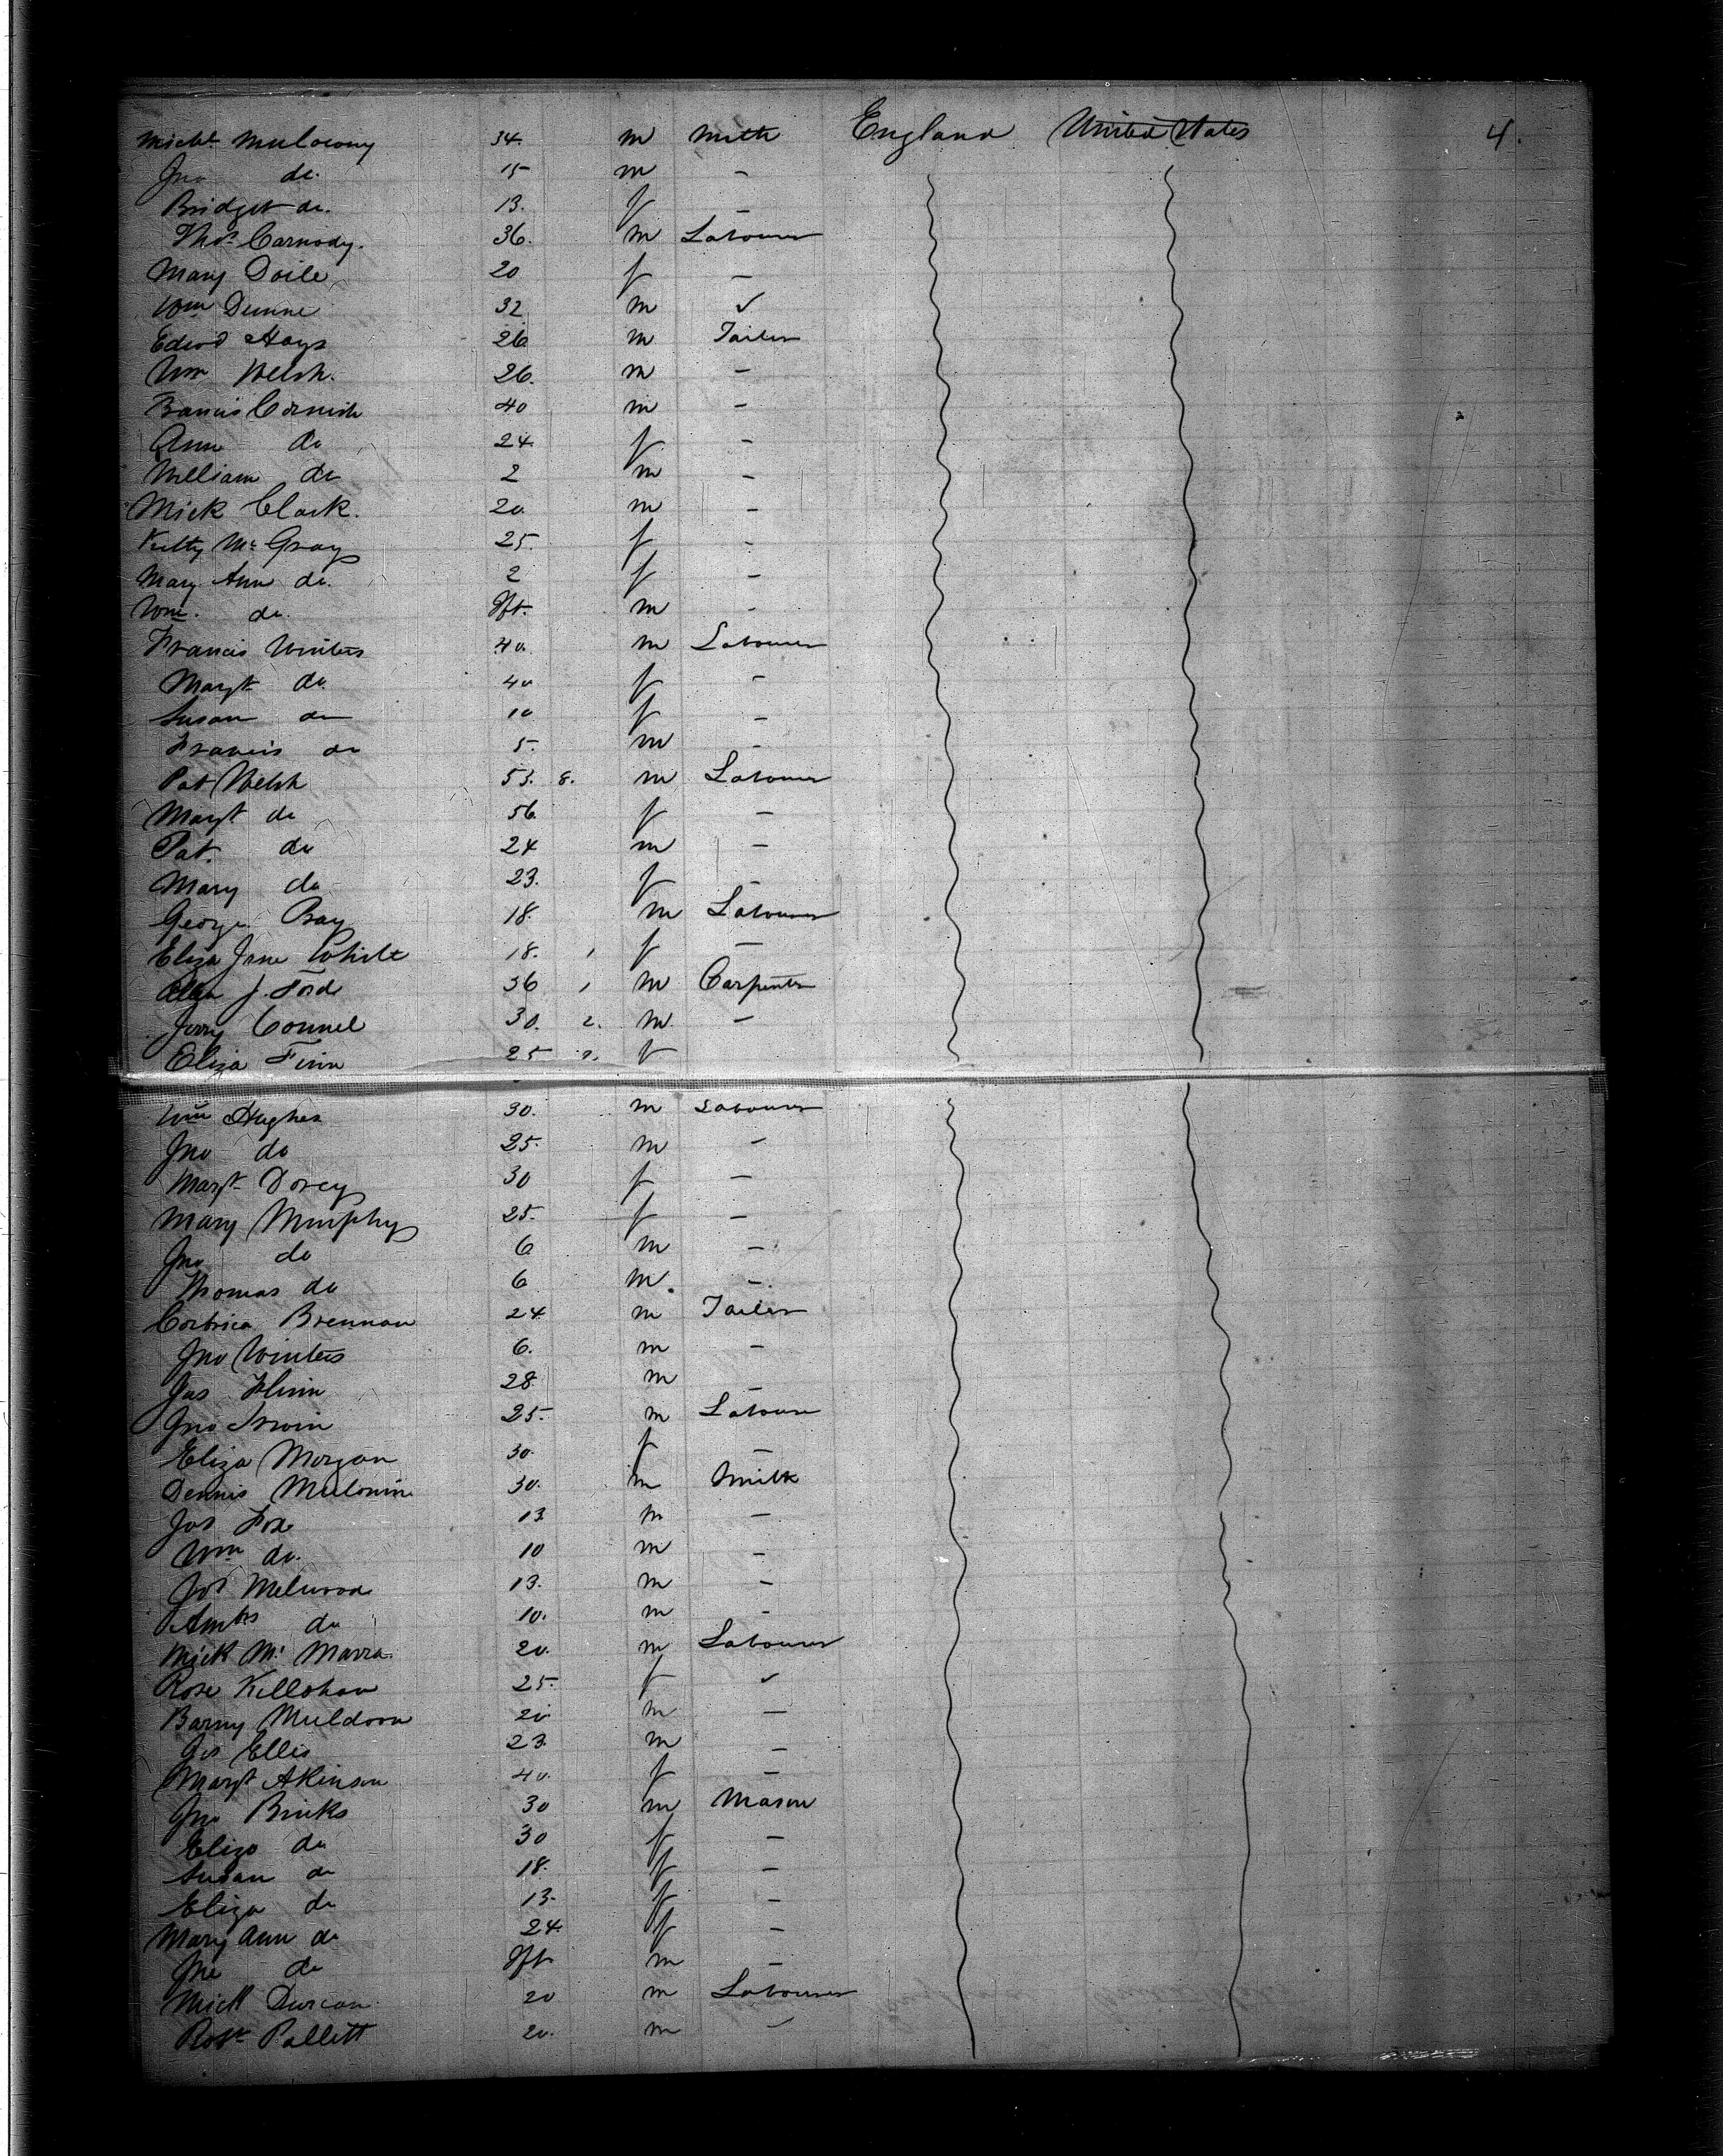 Michl Mulowny 34. m Smith England United States 4.
Jno do. 15 m -
Bridget do. 13. f -
Thos Carmody. 36. m Labourer
Mary Doile 20 f -
Wm Dunne 32 m ✓
Edwd Hays 26 m Tailor
Wm Welsh. 26. m -
Francis Cornish 40 m -
Ann do 24 f -
William do 2 m -
Mick Clark. 20 m -
Kitty Mc Gray 25. f -
Mary Ann do. 2 f -
Wm. do. Ift. m -
Francis Winters 40 m Labourer
Margt do. 40 f -
Susan do 10 f -
Francis do 5. m -
Pat Welsh 53. 8. m Labourer
Margt do 56 f -
Pat. do 24 m -
Mary do 23. f -
George Bray 18. m Labourer
Eliza Jane White 18. 1 f -
J. Ford 36 1 m Carpenter
Jerry Connel 30. 2. m. -
Eliza Finn 25 2. f
Wm Hughes 30. m Labourer
Jno do 25. m -
Margt Dorcy 30 f -
Mary Murphy 25. f -
Jno do 6 m -
Thomas do 6 m. -
Brennan 24 m Tailor
Jno Winters 6. m -
Jas Flinn 28. m -
Jno Irwin 25. m Labourer
Eliza Morgan 30. f -
Dennis Mulonin 30. m Smith
Jos Fox 13 m -
Wm do. 10 m -
Jos Melwood 13. m -
Ambs do 10. m -
Mick Mc Marra. 20. m Labourer
Rose Killohan 25. f ✓
Barny Muldoon 20 m -
Jos Ellis 23. m -
Margt Akinson 40. f -
Jno Binks 30 m Mason
Eliza do 30 f -
Susan do 18. f -
Eliza do 13. f -
Mary Ann do 24. f -
Jno do Ift m -
Mick Durcan. 20 m Labourer
Robt Pallett 20. m -